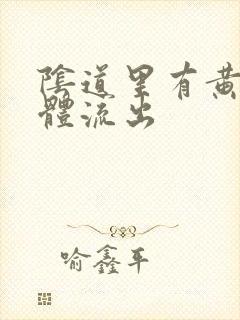 陰道里有黄
體流出
喻鑫平